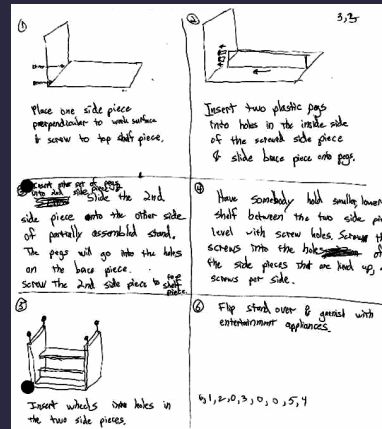 ①
Place one side piece
perpendicular to work surface
& screw to top shelf piece.
②
3,3
Insert two plastic pegs
into holes in the inside side
of the screwed side piece
& slide brace piece onto pegs.
Insert other set of pegs
into 2nd side piece.
Slide the 2nd
side piece onto the other side
of partially assembled stand.
The pegs will go into the holes
on the brace piece.
Screw the 2nd side piece to top shelf
piece.
④
Have somebody hold smaller, lower
shelf between the two side pi
level with screw holes. Screw th
screws into the holes of
the side pieces that are lined up,
screws per side.
⑤
Insert wheels into holes in
the two side pieces.
⑥
Flip stand over & garnish with
entertainment appliances.
1,2,0,3,0,0,5,4